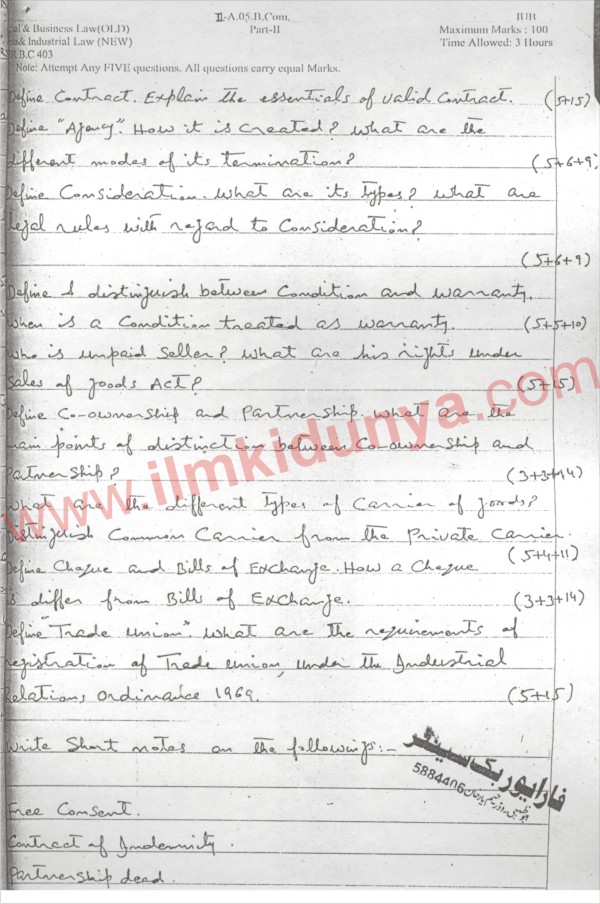 II-A.05.B.Com. IUB
al & Business Law(OLD) Part-II Maximum Marks : 100
& Industrial Law (NEW) Time Allowed: 3 Hours
B.C 403
Note: Attempt Any FIVE questions. All questions carry equal Marks.
Define Contract. Explain the essentials of valid Contract. (5+15)
Define "Agency". How it is created? What are the
different modes of its termination? (5+6+9)
Define Consideration. What are its types? What are
legal rules with regard to Consideration?
(5+6+9)
Define & distinguish between Condition and warranty.
When is a Condition treated as warranty. (5+5+10)
Who is unpaid Seller? What are his rights under
Sales of goods Act? (5+15)
Define Co-ownership and Partnership. What are the
main points of distinction between Co-ownership and
Partnership? (3+3+14)
What are the different types of Carrier of goods?
Distinguish Common Carrier from the Private Carrier.
(5+4+11)
Define Cheque and Bills of Exchange. How a Cheque
is differ from Bills of Exchange. (3+3+14)
Define "Trade Union". What are the requirements of
registration of Trade union, under the Industrial
Relations, Ordinance 1969. (5+15)
Write Short notes on the followings:-
Free Consent.
Contract of Indemnity.
Partnership dead.
www.ilmkidunya.com
بک سینٹر
5884406